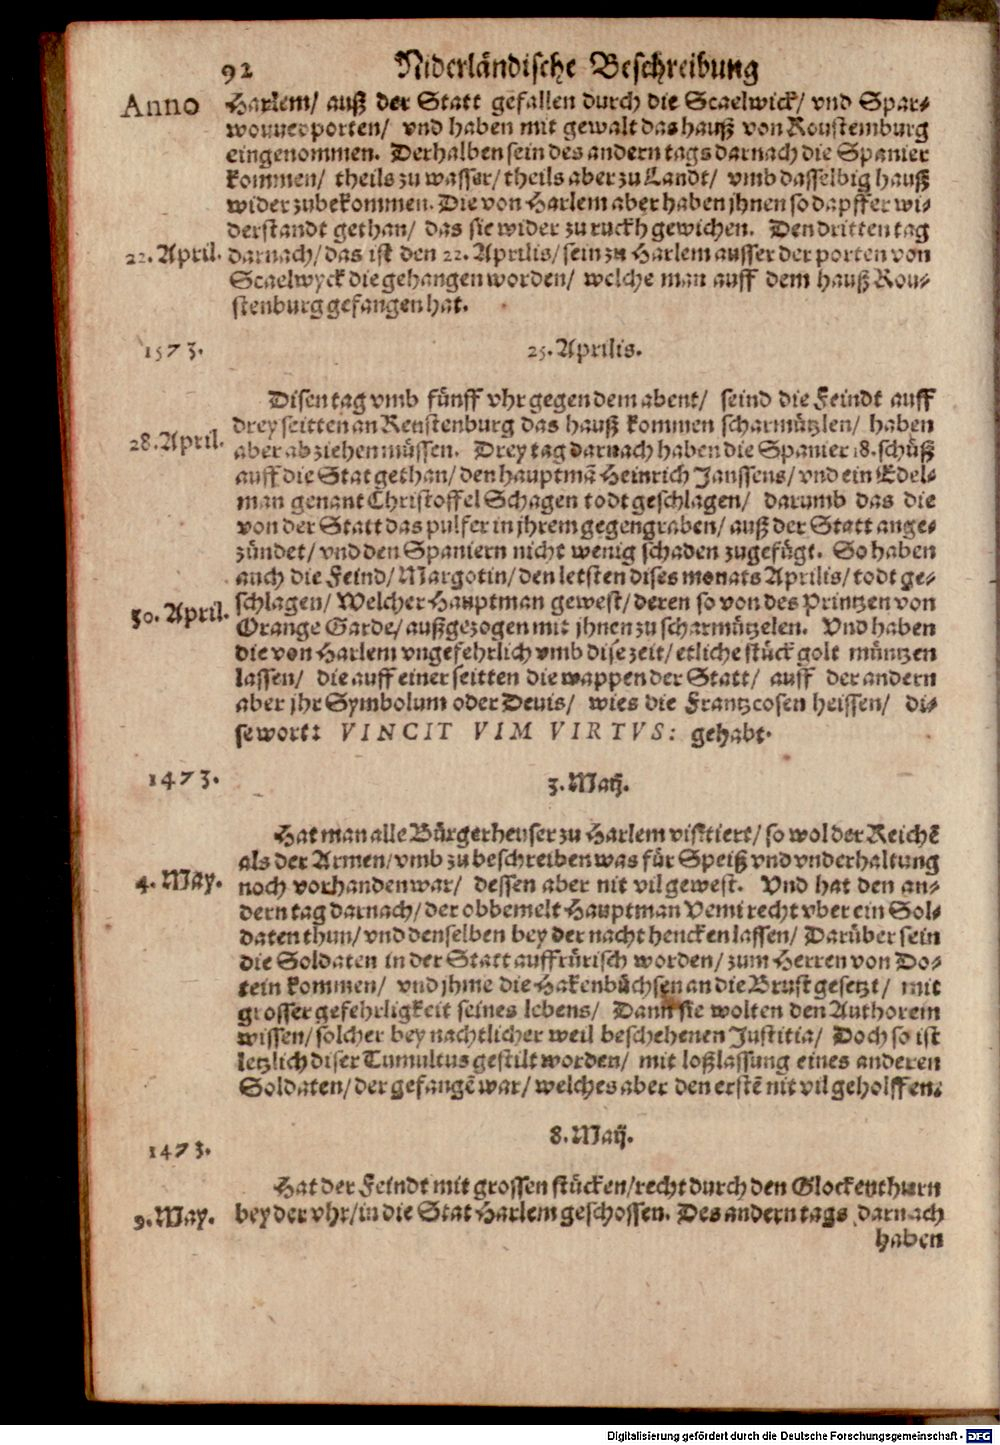 92 Niderländische Beschreibung
Anno
Harlem/ auß der Statt gefallen durch die Scaelwick/ vnd Spar-
wouuer porten/ vnd haben mit gewalt das hauß von Roustemburg
eingenommen. Derhalben sein des andern tags darnach die Spanier
kommen/ theils zu wasser/ theils aber zu Landt/ vmb dasselbig hauß
wider zubekommen. Die von Harlem aber haben jhnen so dapffer wi-
derstandt gethan/ das sie wider zu ruckh gewichen. Den dritten tag
22. April. darnach/ das ist den 22. Aprilis/ sein zu Harlem ausser der porten von
Scaelwyck die gehangen worden/ welche man auff dem hauß Rou-
stenburg gefangen hat.
1573. 25. Aprilis.
Disen tag vmb fünff vhr gegen dem abent/ seind die Feindt auff
drey seitten an Reustenburg das hauß kommen scharmützlen/ haben
28. April. aber abziehen müssen. Drey tag darnach haben die Spanier 18. schüß
auff die Stat gethan/ den hauptmã Heinrich Janssens/ vnd ein Edel-
man genant Christoffel Schagen todt geschlagen/ darumb das die
von der Statt das pulfer in jhrem gegengraben/ auß der Statt ange-
zündet/ vnd den Spaniern nicht wenig schaden zugefügt. So haben
auch die Feind/ Margotin/ den letsten dises monats Aprilis/ todt ge-
30. April. schlagen/ Welcher Hauptman gewest/ deren so von des Printzen von
Orange Garde/ außgezogen mit jhnen zu scharmützelen. Vnd haben
die von Harlem vngefehrlich vmb dise zeit/ etliche stück golt müntzen
lassen/ die auff einer seitten die wappen der Statt/ auff der andern
aber jhr Symbolum oder Deuis/ wies die Frantzcosen heissen/ di-
se wort: VINCIT VIM VIRTVS: gehabt.
1473. 3. Maij.
Hat man alle Bürgerheuser zu Harlem visitiert/ so wol der Reichẽ
als der Armen/ vmb zu beschreiben was für Speiß vnd vnderhaltung
4. May. noch vorhanden war/ dessen aber nit vil gewest. Vnd hat den an-
dern tag darnach/ der obbemelt Hauptman Vemi recht vber ein Sol-
daten thun/ vnd denselben bey der nacht hencken lassen/ Darüber sein
die Soldaten in der Statt auffrürisch worden/ zum Herren von Do-
tein kommen/ vnd jhme die Hakenbüchsen an die Brust gesetzt/ mit
grosser gefehrligkeit seines lebens/ Dann sie wolten den Authorem
wissen/ solcher bey nachtlicher weil beschehenen Justitia/ Doch so ist
letzlich diser Tumultus gestilt worden/ mit loßlassung eines anderen
Soldaten/ der gefangẽ war/ welches aber den erstẽ nit vil geholffen.
1473. 8. Maij.
Hat der Feindt mit grossen stücken/ recht durch den Glockenthurn
9. May. bey der vhr/ in die Stat Harlem geschossen. Des andern tags darnach
haben
Digitalisierung gefördert durch die Deutsche Forschungsgemeinschaft - DFG